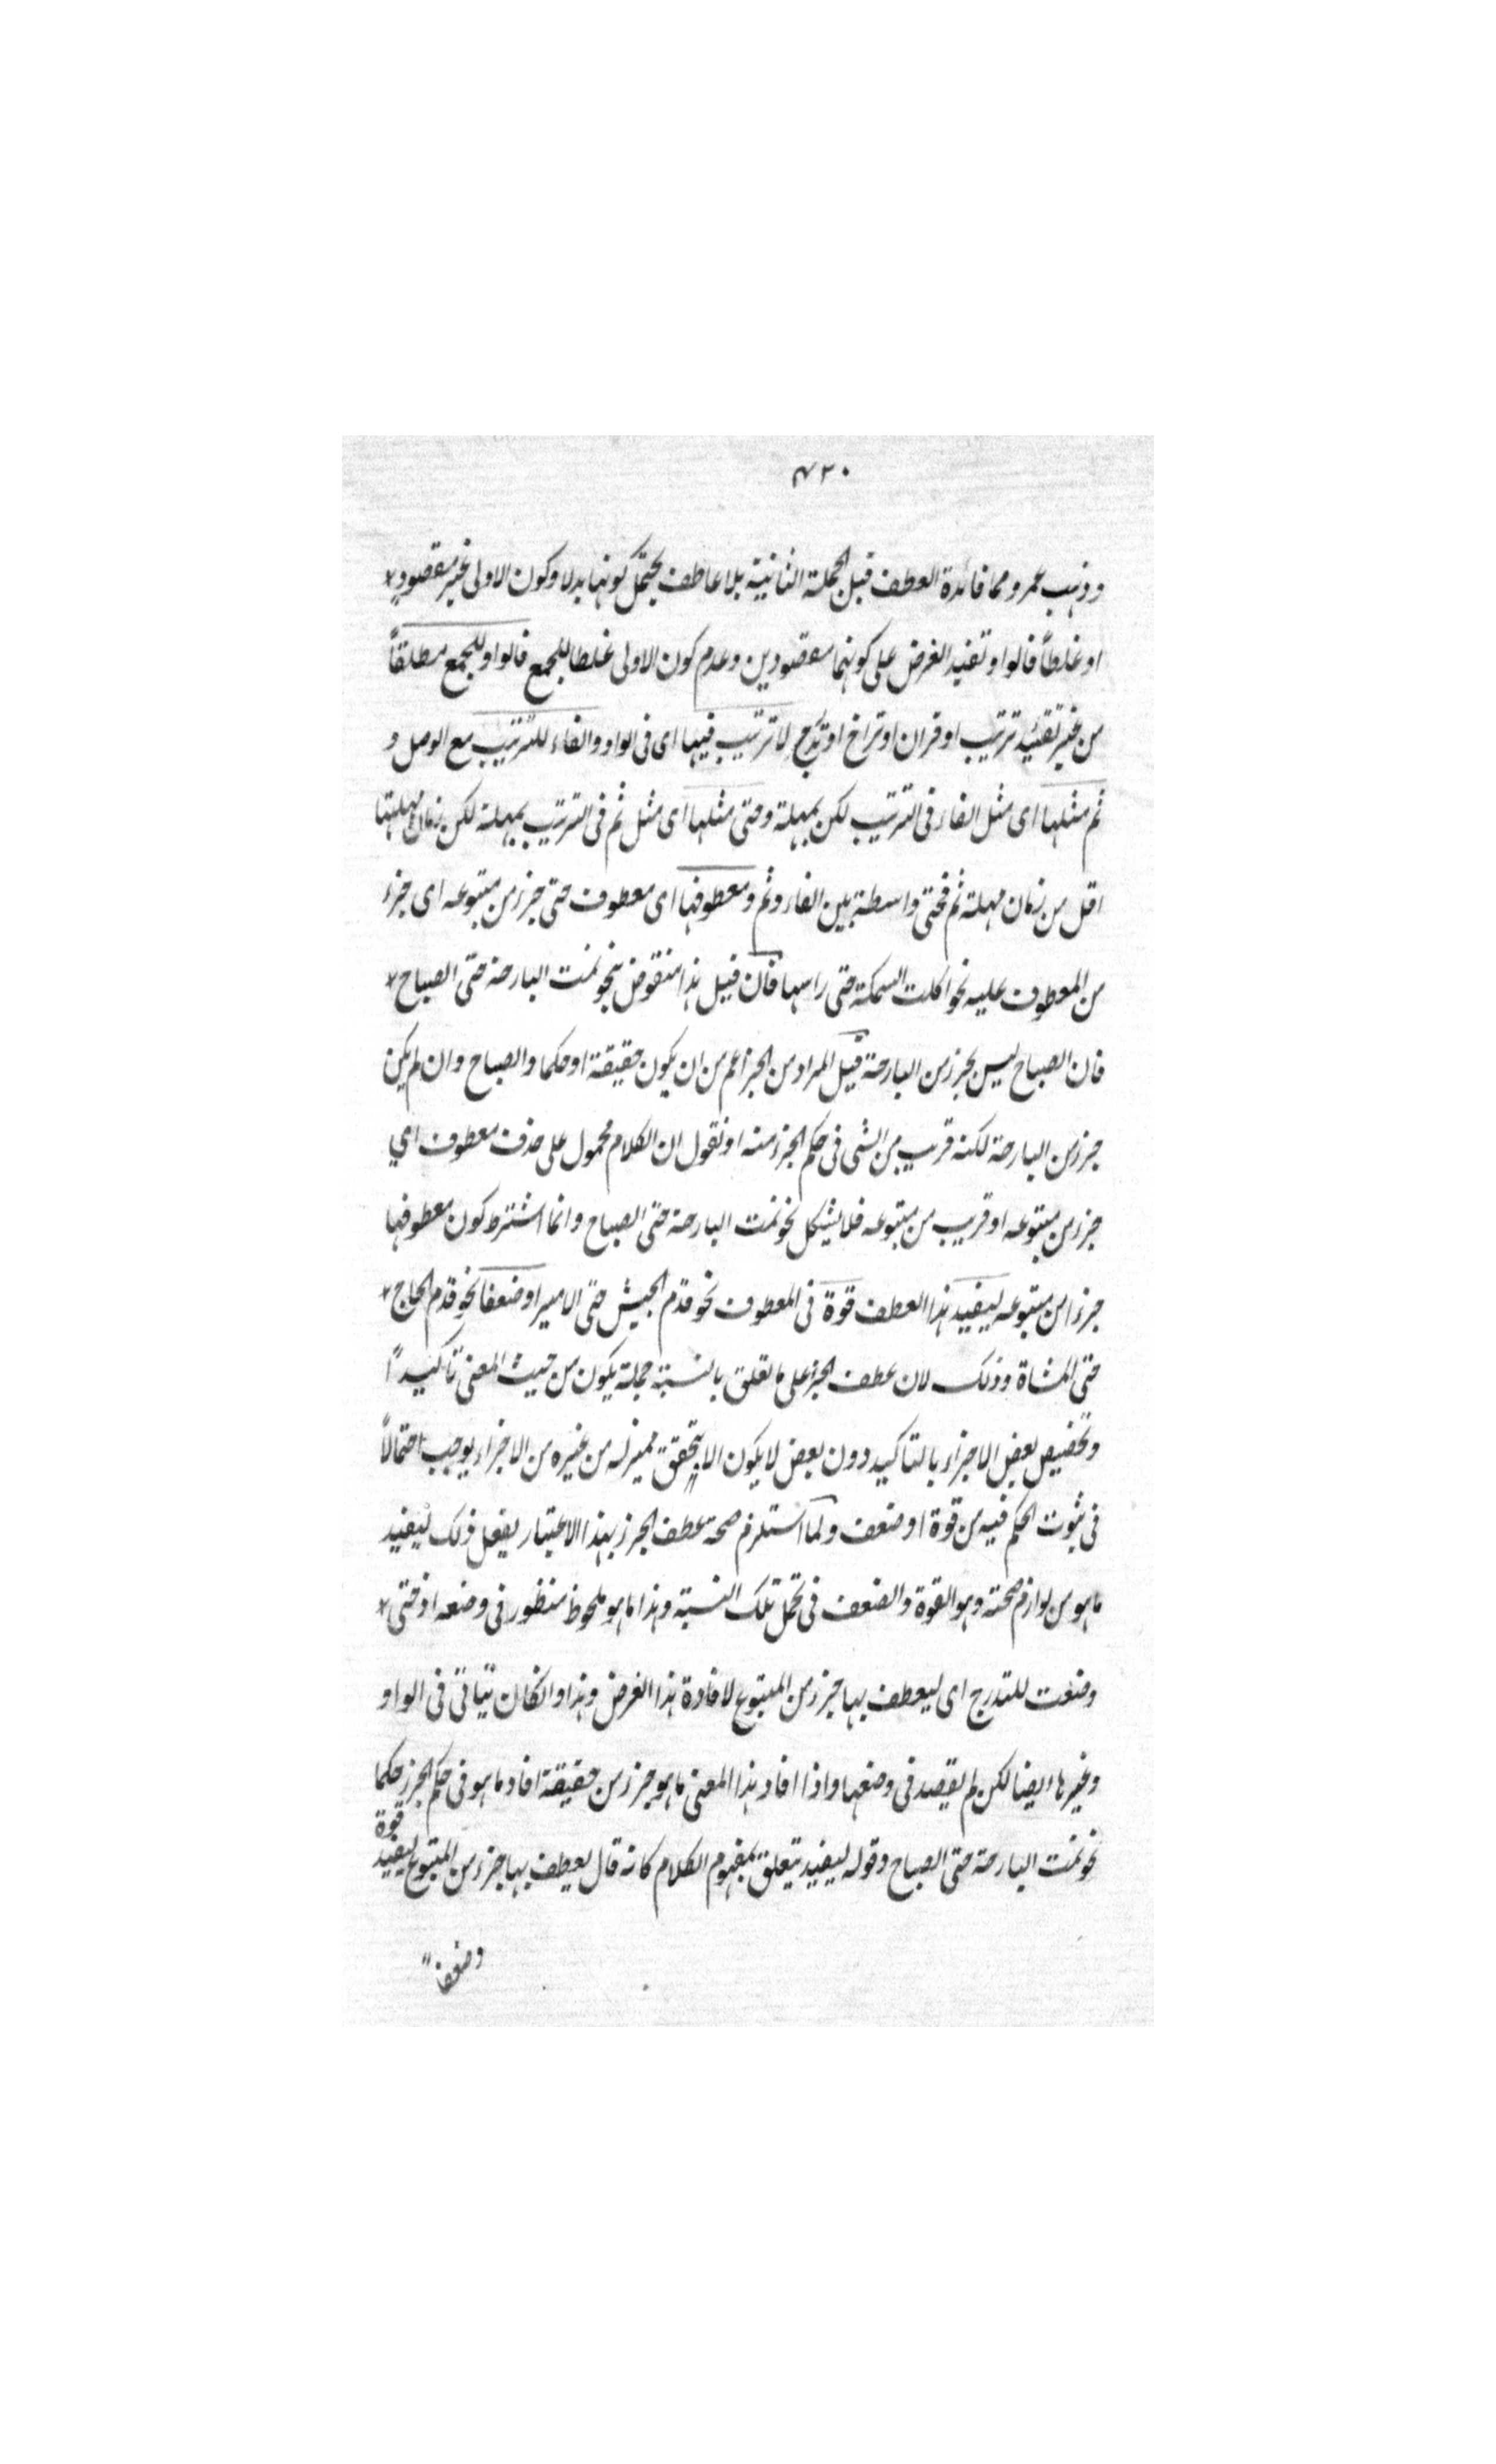 ٧٢٠
وذهب عمرو مما فائدة العطف قبل الجملة الثانية بلا عاطف يحتمل كونها بدلا وكون الاولى غير مقصود
او غلطاً فالواو تفيد الغرض على كونهما مقصودين وعدم كون الاولى غلطا للجمع فالواو للجمع مطلقاً
من غير تقييد ترتيب او قران او تراخ او تدرج لا ترتيب فيها اى فى الواو والفاء للترتيب مع الوصل و
ثم مثلها اى مثل الفاء فى الترتيب لكن بمهلة وحتى مثلها اى مثل ثم فى الترتيب بمهلة لكن زمان مهلتها
اقل من زمان مهلة ثم فحتى واسطة بين الفاء وثم ومعطوفها اى معطوف حتى جزء من متبوعه اى جزء
من المعطوف عليه نحو اكلت السمكة حتى راسها فان قيل هذا منقوض بنحو نمت البارحة حتى الصباح
فان الصباح ليس بجزء من البارحة قيل المراد من الجزء اعم من ان يكون حقيقة او حكما والصباح وان لم يكن
جزء من البارحة لكنه قريب من الشى فى حكم الجزء منه او نقول ان الكلام محمول على حذف معطوف اي
جزء من متبوعه او قريب من متبوعه فلا يشكل نحو نمت البارحة حتى الصباح وانما اشترط كون معطوفها
جزءا من متبوعه ليفيد هذا العطف قوة فى المعطوف نحو قدم الجيش حتى الامير او ضعفا نحو قدم الحاج
حتى المشاة وذلك لان عطف الجزء على ما تعلق بالنسبة جملة يكون من حيث المعنى تاكيداً
وتخصيص بعض الاجزاء بالتاكيد دون بعض لا يكون الا بتحقق مميز له من غيره من الاجزاء يوجب احتمالاً
فى ثبوت الحكم فيه من قوة او ضعف ولما استلزم صحة عطف الجزء بهذا الاعتبار يفعل ذلك ليفيد
ما هو من لوازم صحته وهو القوة والضعف فى تحمل تلك النسبة وهذا ما هو ملحوظ منظور فى وضعه او فحتى
وضعت للتدرج اى ليعطف بها جزء من المتبوع لافادة هذا الغرض وهذا وانكان يتاتى فى الواو
وغيرها ايضا لكن لم يقصد فى وضعها واذا افاد هذا المعنى ما هو جزء من حقيقة افاد ما هو فى حكم الجزء حكما
نحو نمت البارحة حتى الصباح وقوله ليفيد يتعلق بمفهوم الكلام كانه قال يعطف بها جزء من المتبوع ليفيد قوة
وضعفا